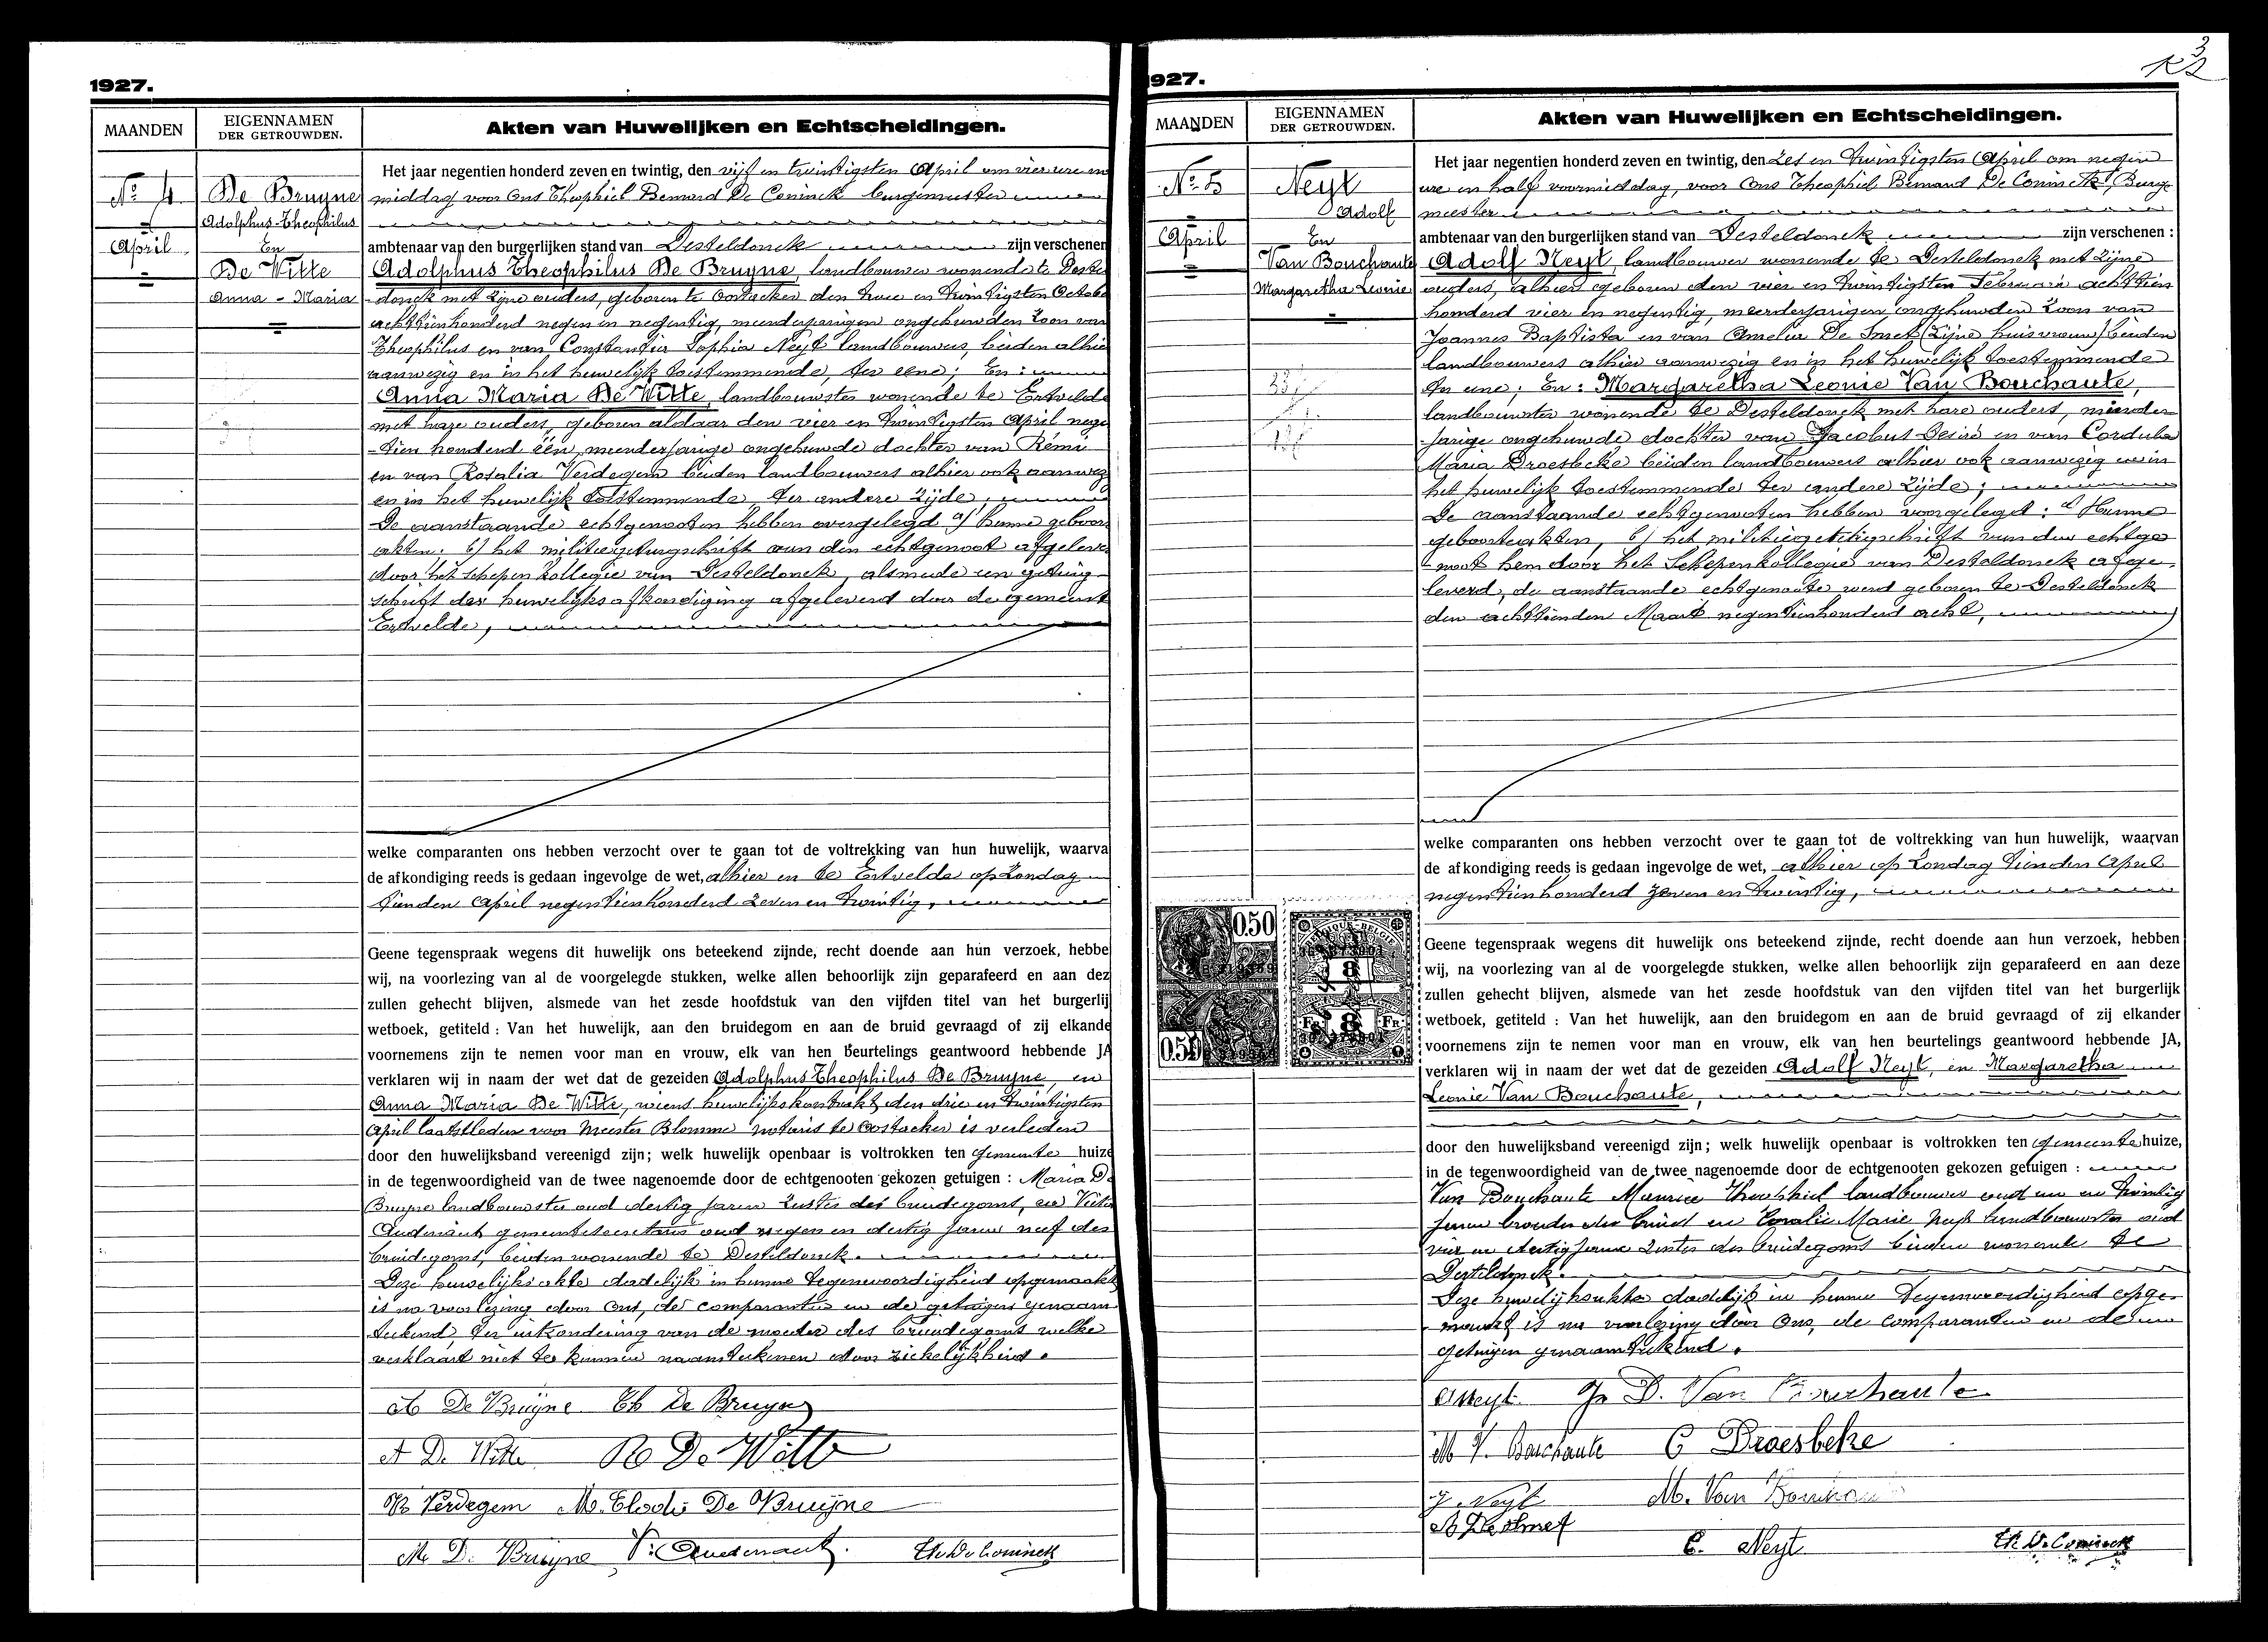 1927.
MAANDEN
EIGENNAMEN
DER GETROUWDEN.
Akten van Huwelijken en Echtscheidingen.
No 4
April
De Bruyne
Adolphus-Theophilus
En
De Witte
Anna - Maria
Het jaar negentien honderd zeven en twintig, den vijf en twintigsten April om vier ure na
middag voor Ons Theophiel Bernard De Coninck burgemeester
ambtenaar van den burgerlijken stand van Desteldonck zijn verschenen
Adolphus Theophilus De Bruyne, landbouwer wonende te Deste
donck met zijne ouders, geboren te Oostacker den twee en twintigsten Octobe
achttienhonderd negen en negentig, meerderjarigen ongehuwden zoon van
Theophilus en van Constantia Sophia Neyt landbouwers, beiden alhie
aanwezig en in het huwelijk toestemmende, ter eene; En:
Anna Maria De Witte, landbouwster wonende te Ertveld
met hare ouders, geboren aldaar den vier en twintigsten April nege
tien honderd één, meerderjarige ongehuwde dochter van Remi
en van Rosalia Verdegem beiden landbouwers alhier ook aanwez
en in het huwelijk toestemmende, ter andere zijde;
De aanstaande echtgenooten hebben overgelegd a/ hunne geboor
akten; b/ het militiegetuigschrift van den echtgenoot afgeleve
door het schepen kollegie van Desteldonck, alsmede een getuig
schrift der huwelijksafkondiging afgeleverd door de gemeent
Ertvelde,
welke comparanten ons hebben verzocht over te gaan tot de voltrekking van hun huwelijk, waarva
de afkondiging reeds is gedaan ingevolge de wet, alhier en te Ertvelde op Zondag
tienden April negentienhonderd zeven en twintig,
Geene tegenspraak wegens dit huwelijk ons beteekend zijnde, recht doende aan hun verzoek, hebbe
wij, na voorlezing van al de voorgelegde stukken, welke allen behoorlijk zijn geparafeerd en aan dez
zullen gehecht blijven, alsmede van het zesde hoofdstuk van den vijfden titel van het burgerlij
wetboek, getiteld : Van het huwelijk, aan den bruidegom en aan de bruid gevraagd of zij elkande
voornemens zijn te nemen voor man en vrouw, elk van hen beurtelings geantwoord hebbende JA
verklaren wij in naam der wet dat de gezeiden Adolphus Theophilus De Bruyne, en
Anna Maria De Witte, wiens huwelijkskontrakt den drie en twintigsten
April laatstleden voor Meester Blomme notaris te Oostacker is verleden
door den huwelijksband vereenigd zijn; welk huwelijk openbaar is voltrokken ten gemeente huize
in de tegenwoordigheid van de twee nagenoemde door de echtgenooten gekozen getuigen : Maria De
Bruyne landbouwster oud dertig jaren zuster des bruidegoms, en Victor
Audenaert gemeentesecretaris oud negen en dertig jaren neef des
bruidegoms, beiden wonende te Desteldonck.
Deze huwelijksakte dadelijk in hunne tegenwoordigheid opgemaakt
is na voorlezing door Ons, de comparanten en de getuigen genaam
teekend, ter uitzondering van de moeder des bruidegoms welke
verklaart niet te kunnen naamteekenen door ziekelijkheid.
A De Bruÿne Th De Bruyne
A De Witte R De Witte
R Verdegem M. Elodie De Bruÿne
M. D. Bruijne V. Audenaert. Th De Coninck
1927.
3
MAANDEN
EIGENNAMEN
DER GETROUWDEN.
Akten van Huwelijken en Echtscheidingen.
No 5
April
Neyt
Adolf
En
Van Bouchaute
Margaretha Leonie
Het jaar negentien honderd zeven en twintig, den zes en twintigsten April om negen
ure en half voormiddag, voor Ons Theophiel Bernard De Coninck, Burge
meester
ambtenaar van den burgerlijken stand van Desteldonck zijn verschenen :
Adolf Neyt, landbouwer wonende te Desteldonck met zijne
ouders, alhier geboren den vier en twintigsten Februari achttien
honderd vier en negentig, meerderjarigen ongehuwden zoon van
Joannes Baptista en van Amelia De Smet (zijne huisvrouw) beiden
landbouwers alhier aanwezig en in het huwelijk toestemmende
ter eene; En: Margaretha Leonie Van Bouchaute,
landbouwster wonende te Desteldonck met hare ouders, minder
jarige ongehuwde dochter van Jacobus Desiré en van Cordula
Maria Droesbeke beiden landbouwers alhier ook aanwezig en in
het huwelijk toestemmende ter andere zijde;
De aanstaande echtgenooten hebben voorgelegd: a/ Hunne
geboorteakten, b/ het militiegetuigschrift van den echtge
noot hem door het Schepenkollegie van Desteldonck afge-
leverd, de aanstaande echtgenoote werd geboren te Desteldonck
den achttienden Maart negentienhonderd acht,
welke comparanten ons hebben verzocht over te gaan tot de voltrekking van hun huwelijk, waarvan
de afkondiging reeds is gedaan ingevolge de wet, alhier op Zondag tienden April
negentienhonderd zeven en twintig,
0.50
8
8
FR.
FR.
0.50
Geene tegenspraak wegens dit huwelijk ons beteekend zijnde, recht doende aan hun verzoek, hebben
wij, na voorlezing van al de voorgelegde stukken, welke allen behoorlijk zijn geparafeerd en aan deze
zullen gehecht blijven, alsmede van het zesde hoofdstuk van den vijfden titel van het burgerlijk
wetboek, getiteld : Van het huwelijk, aan den bruidegom en aan de bruid gevraagd of zij elkander
voornemens zijn te nemen voor man en vrouw, elk van hen beurtelings geantwoord hebbende JA,
verklaren wij in naam der wet dat de gezeiden Adolf Neyt, en Margaretha
Leonie Van Bouchaute,
door den huwelijksband vereenigd zijn; welk huwelijk openbaar is voltrokken ten gemeente huize,
in de tegenwoordigheid van de twee nagenoemde door de echtgenooten gekozen getuigen :
Van Bouchaute Maurice Theophiel landbouwer oud een en twintig
jaren broeder der bruid en Coralie Marie Neyt landbouwster oud
vier en dertig jaren zuster des bruidegoms beiden wonende te
Desteldonck.
Deze huwelijksakte dadelijk in hunne tegenwoordigheid opge-
maakt is na voorlezing door Ons, de comparanten en de
getuigen genaamteekend.
A Neyt. J. D. Van Bouchaute
M V. Bouchaute C Droesbeke
J. Neyt M. Van Bouchau
A De Smet
C. Neyt Th. De Coninck